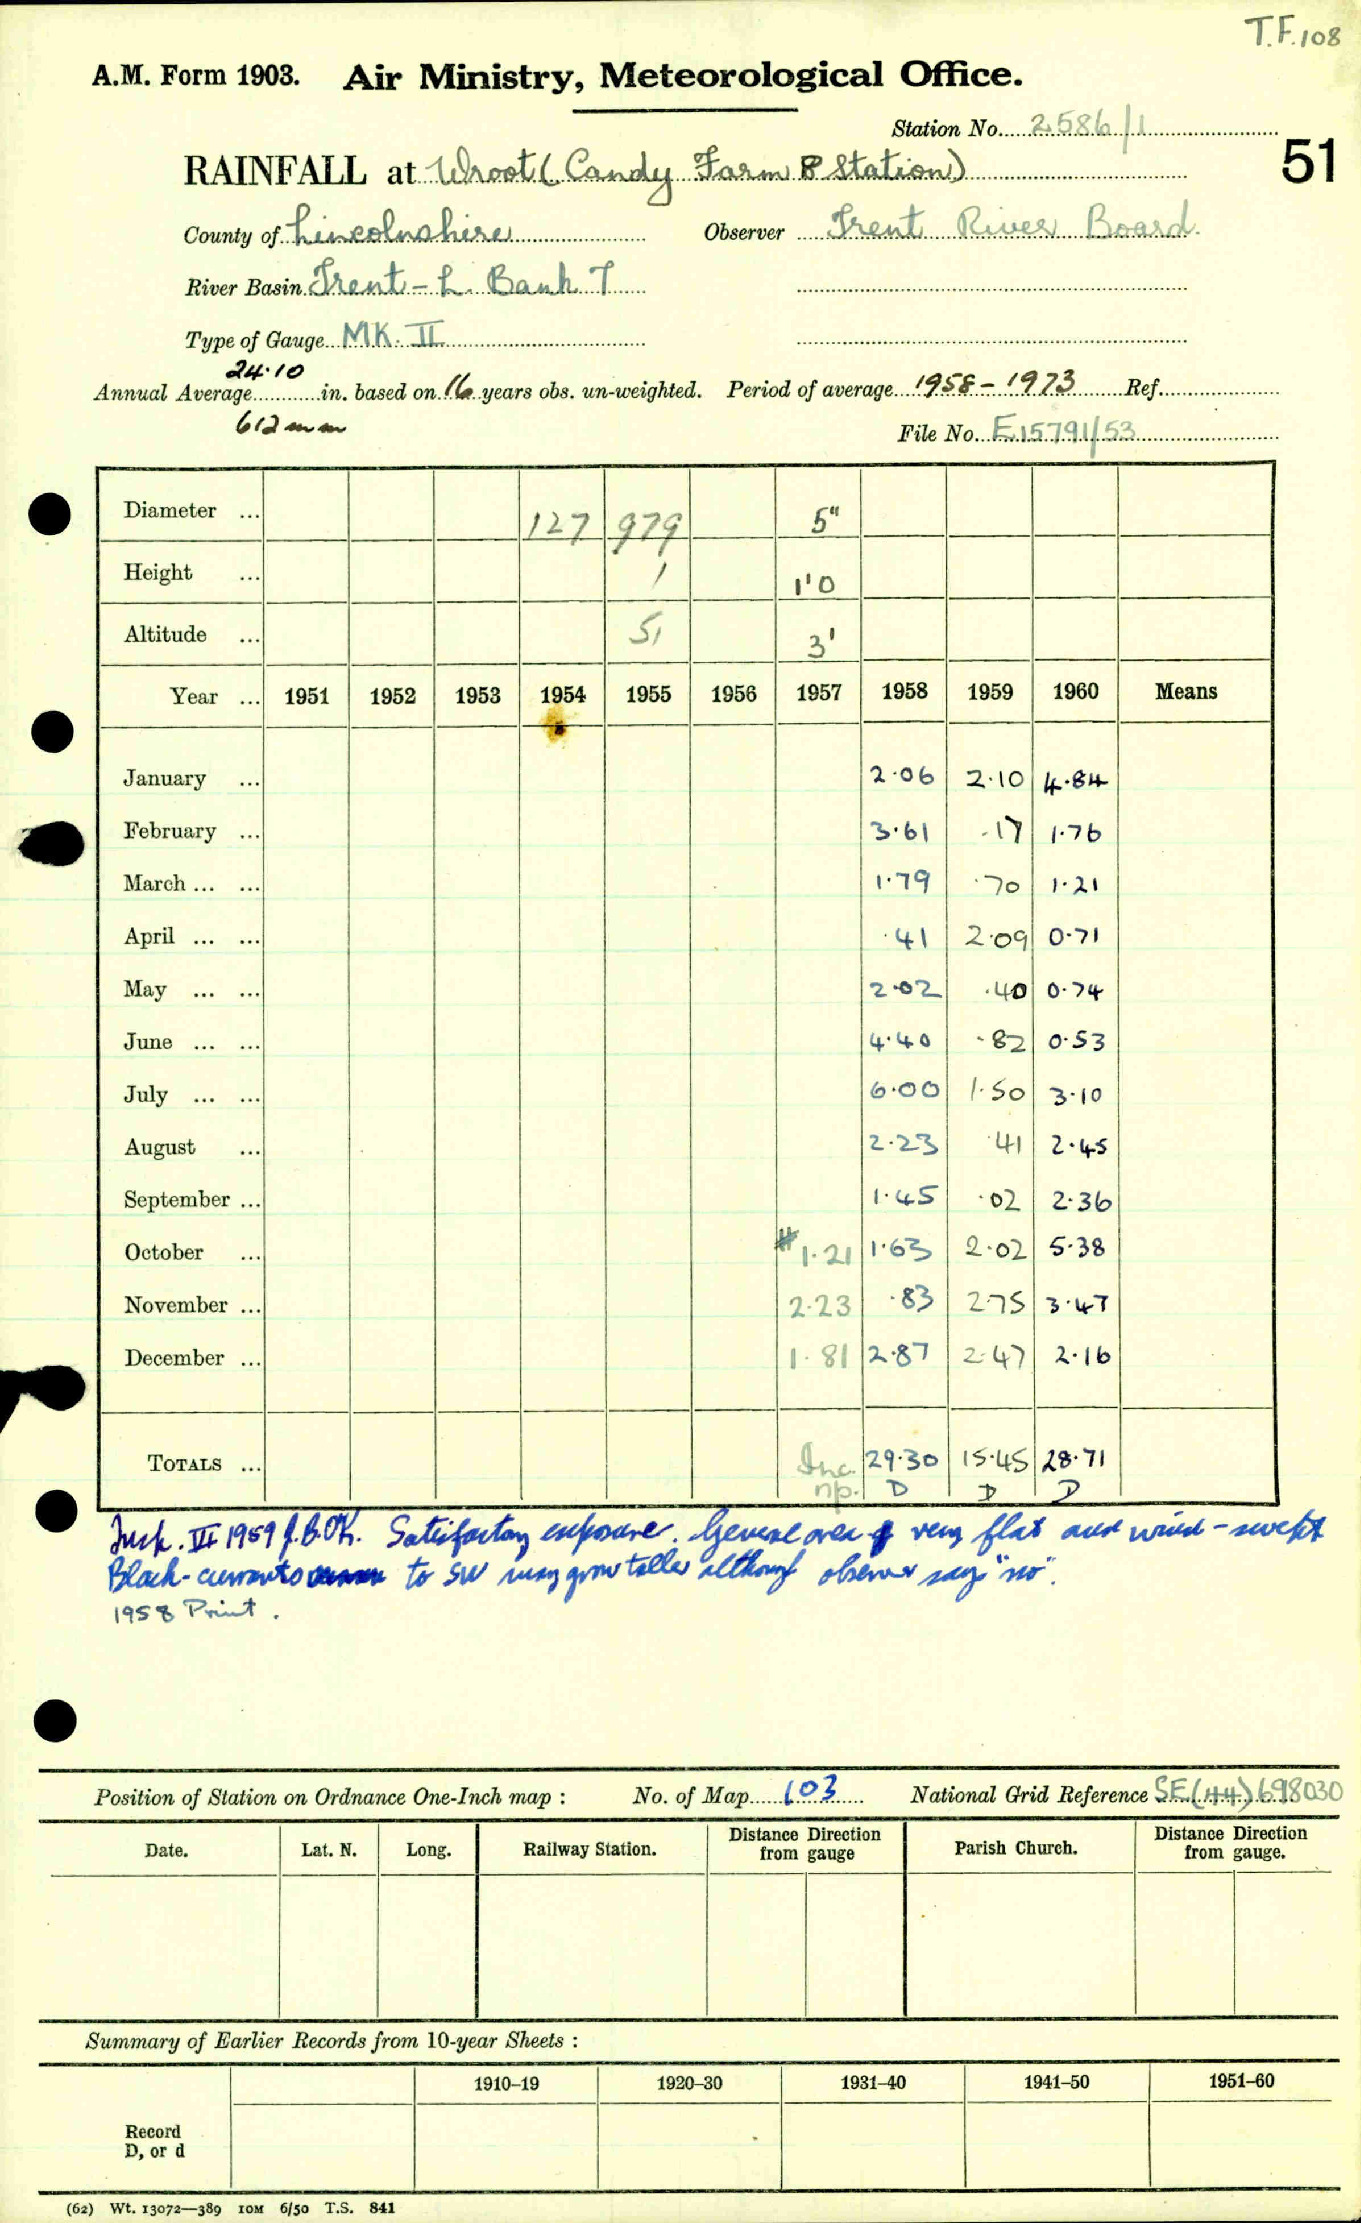 T.F.108
A.M. Form 1903. Air Ministry, Meteorological Office.
Station No. 2586/1
51
RAINFALL at Wroot (Candy Farm P Station)
County of Lincolnshire Observer Trent River Board.
River Basin Trent - L. Bank T
Type of Gauge MK. II
Annual Average 24.10 in. based on 16 years obs. un-weighted. Period of average 1958-1973 Ref.
612 mm
File No. E15791/53
Diameter ... 127 979 5"
Height ... 1 1'0
Altitude ... 51 3'
Year ... 1951 1952 1953 1954 1955 1956 1957 1958 1959 1960 Means
January ... 2.06 2.10 4.84
February ... 3.61 .17 1.76
March ... ... 1.79 .70 1.21
April ... ... .41 2.09 0.71
May ... ... 2.02 .40 0.74
June ... ... 4.40 .82 0.53
July ... ... 6.00 1.50 3.10
August ... 2.23 .41 2.45
September ... 1.45 .02 2.36
October ... # 1.21 1.63 2.02 5.38
November ... 2.23 .83 2.75 3.47
December ... 1.81 2.87 2.47 2.16
TOTALS ... Inc. 29.30 15.45 28.71
np. D D D
Insp. III 1959 J.B. OK. Satisfactory exposure. General area very flat and wind-swept
Black-currants to SW may grow taller although observer says "no".
1958 Print.
Position of Station on Ordnance One-Inch map : No. of Map 103 National Grid Reference SE(44)698030
Date. Lat. N. Long. Railway Station. Distance Direction from gauge Parish Church. Distance Direction from gauge.
Summary of Earlier Records from 10-year Sheets :
1910–19 1920–30 1931–40 1941–50 1951–60
Record
D, or d
(62) Wt. 13072—389 10M 6/50 T.S. 841